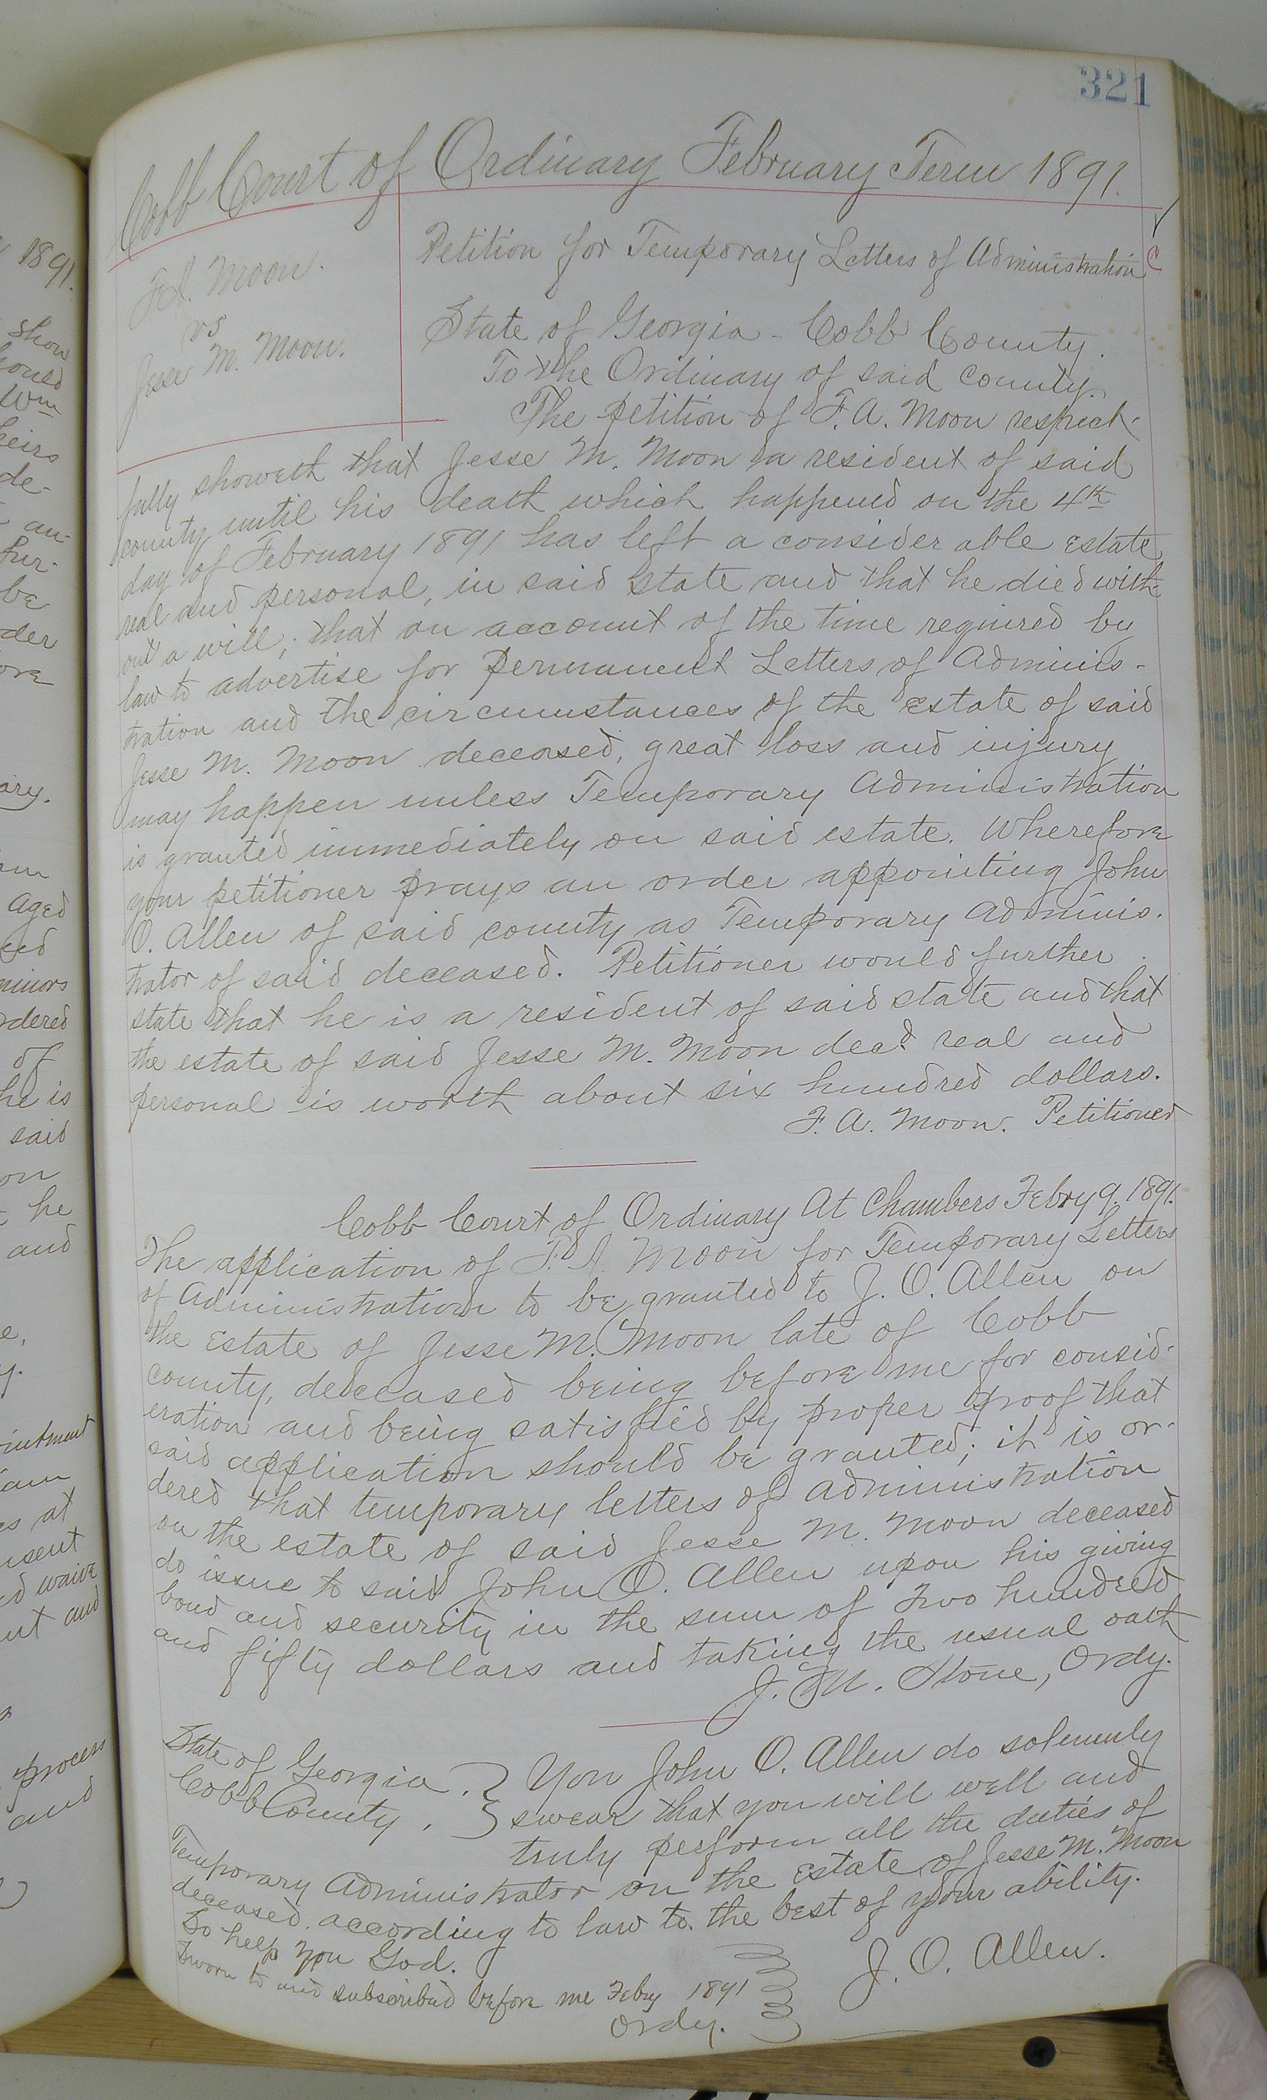 321
Cobb Court of Ordinary February Term 1891.
F.A. Moon.
vs
Jesse M. Moon.
Petition for Temporary Letters of Administration
C
State of Georgia - Cobb County.
To the Ordinary of said county.
The petition of F. A. Moon respect-
fully showeth that Jesse M. Moon a resident of said
county until his death which happened on the 4th
day of February 1891 has left a considerable estate
real and personal, in said state and that he died with
out a will; that on account of the time required by
law to advertise for Permanent Letters of Adminis-
tration and the circumstances of the estate of said
Jesse M. Moon deceased, great loss and injury
may happen unless Temporary Administration
is granted immediately on said estate. Wherefore
your petitioner prays an order appointing John
O. Allen of said county as Temporary Adminis-
trator of said deceased. Petitioner would further
state that he is a resident of said state and that
the estate of said Jesse M. Moon decd real and
personal is worth about six hundred dollars.
F. A. Moon. Petitioner
Cobb Court of Ordinary At Chambers Febry 9. 1891.
The application of F. A. Moon for Temporary Letters
of Administration to be granted to J. O. Allen on
the Estate of Jesse M. Moon late of Cobb
county, deceased being before me for consid-
eration and being satisfied by proper proof that
said application should be granted; it is or-
dered that temporary letters of administration
on the estate of said Jesse M. Moon deceased
do issue to said John O. Allen upon his giving
bond and security in the sum of Two hundred
and fifty dollars and taking the usual oath
J. M. Stone, Ordy.
State of Georgia.
Cobb County.
You John O. Allen do solemnly
swear that you will well and
truly perform all the duties of
Temporary Administrator on the estate of Jesse M. Moon
deceased, according to law to the best of your ability.
So help you God.
Sworn to and subscribed before me Febry 1891
Ordy.
J. O. Allen.
1891.
shon
Wm
heirs
de-
an-
be
der
ore
ary.
aged
minors
dered
of
he is
said
on
he
and
intment
iam
es at
nsent
ed waive
ut and
process
and